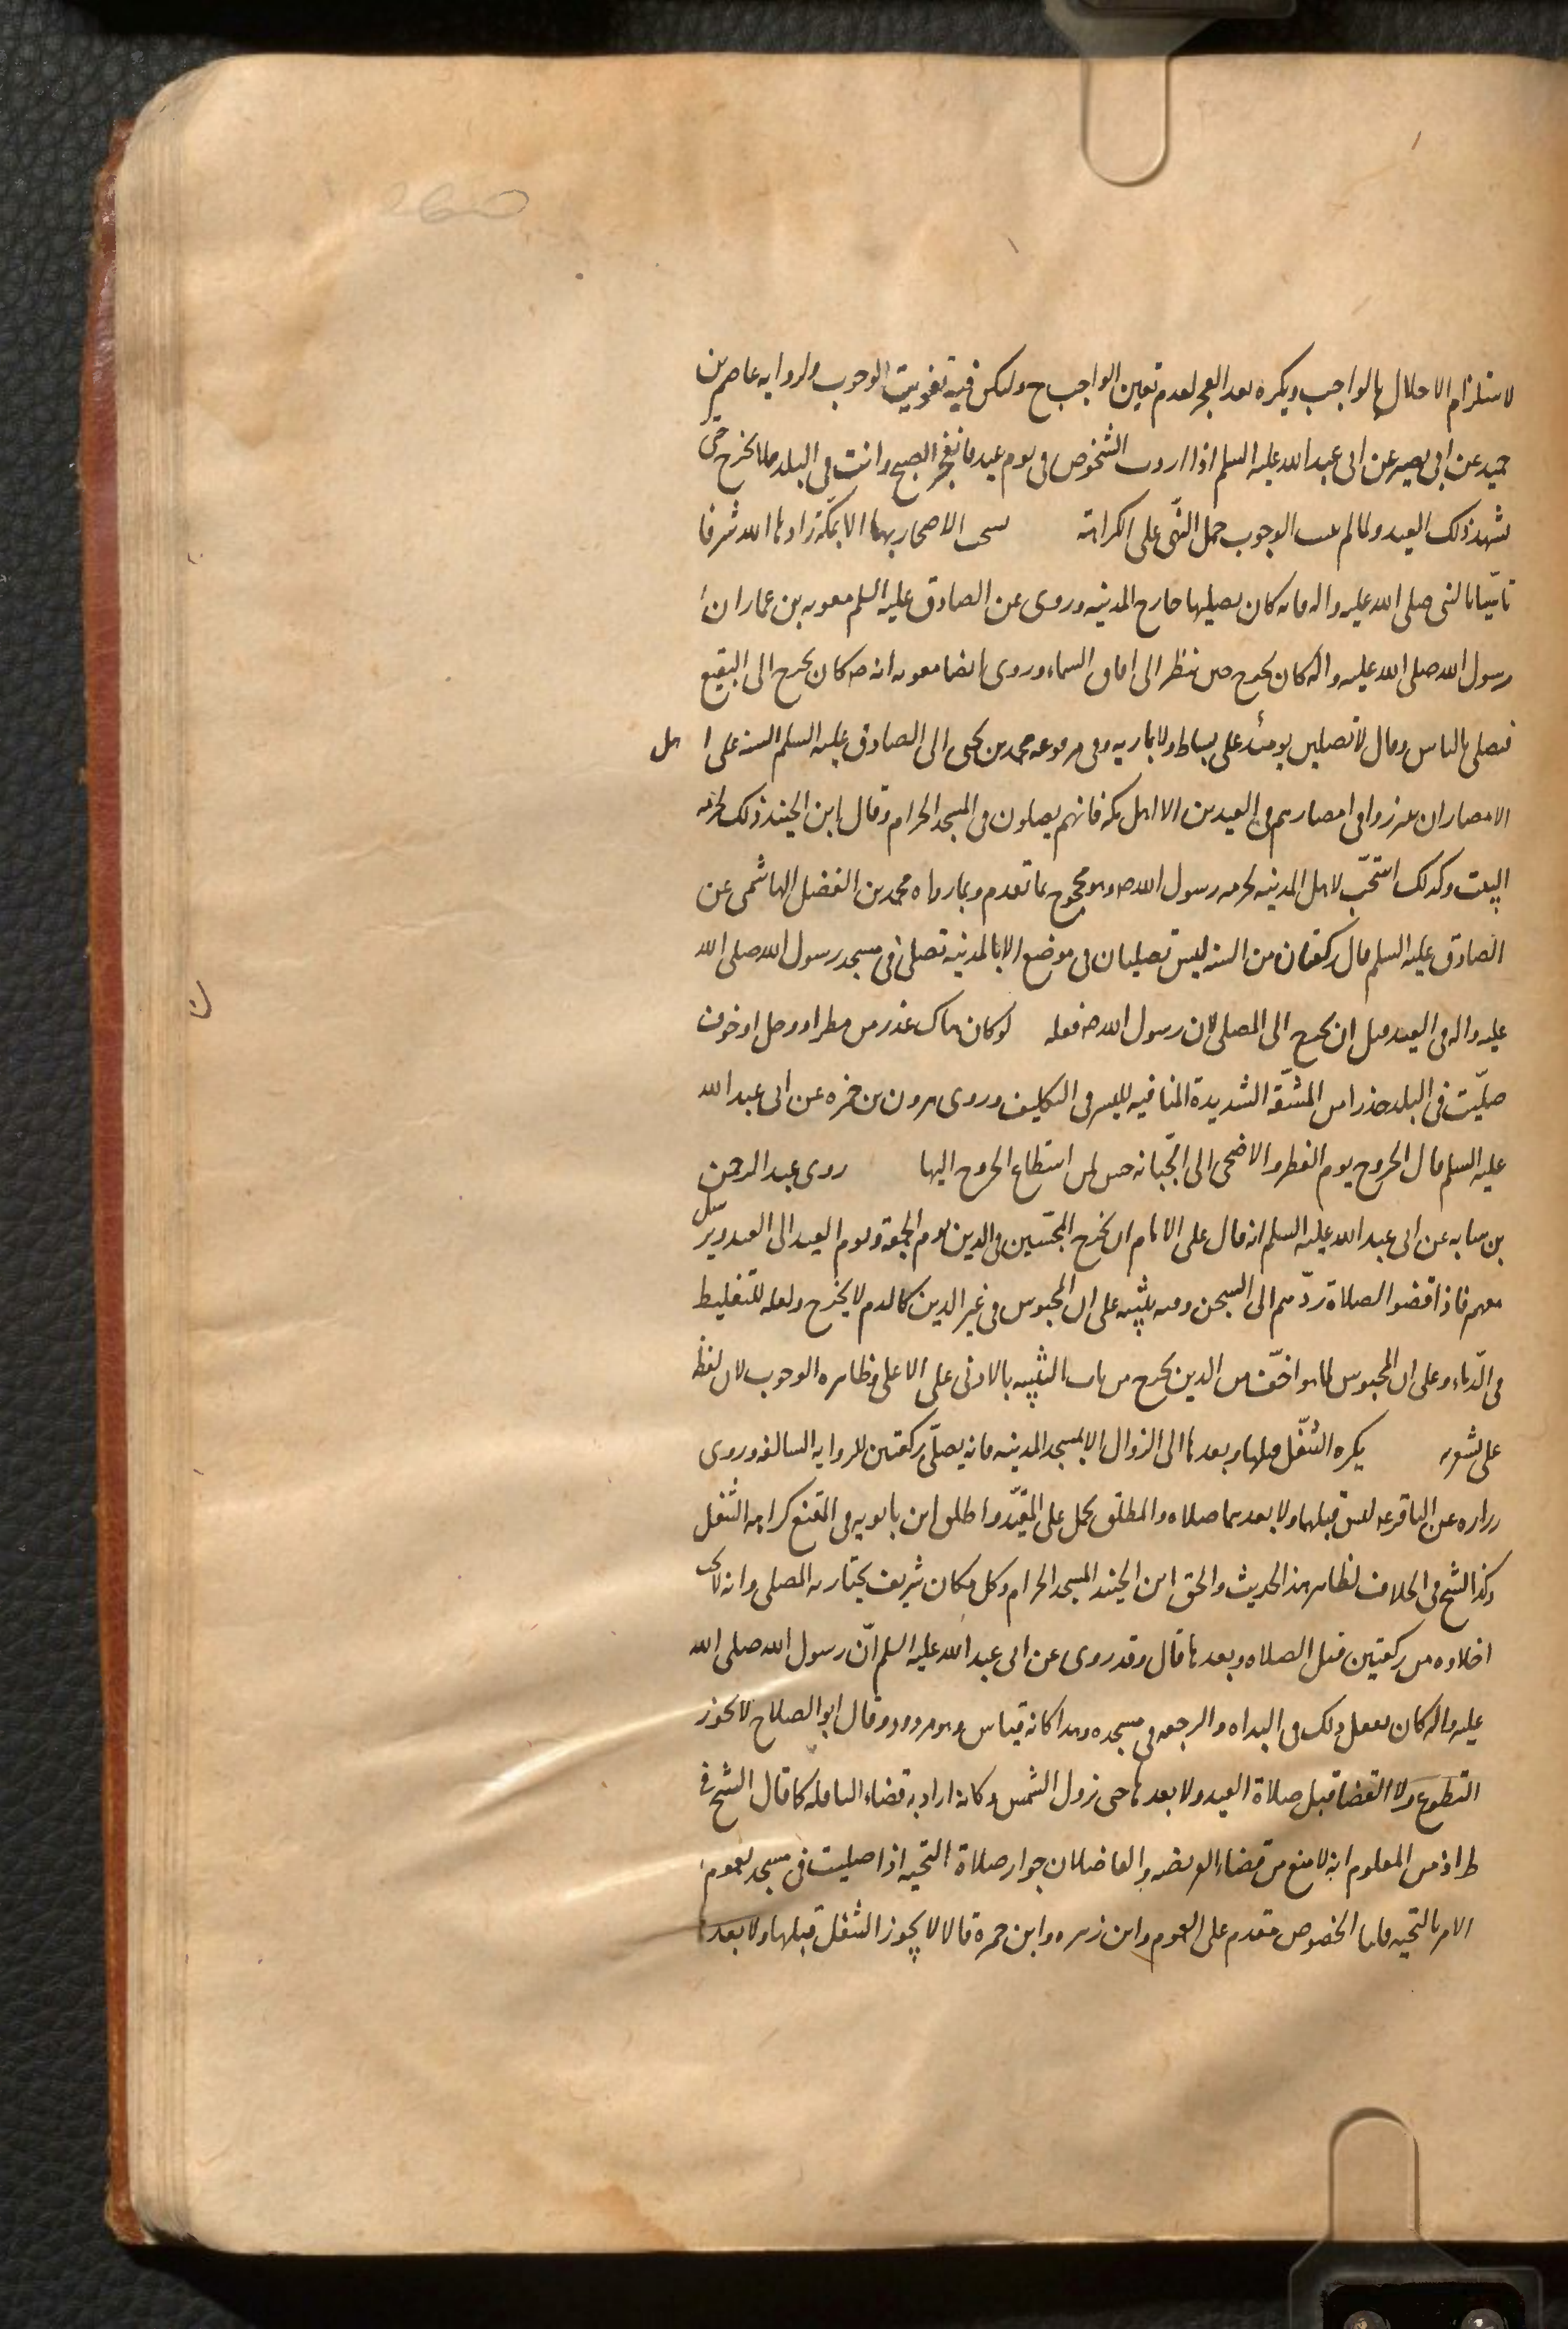 لاستلزام الاخلال بالواجب ويكره بعد الفجر لعدم تعين الواجب ح ولكن فيه تفويت الوجوب ولرواية عاصم بن
حميد عن ابى بصير عن ابى عبد الله عليه السلم اذا اردت الشخوص فى يوم عيد فانفجر الصبح وانت فى البلد فلا تخرج حتى
تشهد ذلك العيد ولما لم يثبت الوجوب حمل النهى على الكراهة يستحب الاصحار بها الا بمكة زادها الله شرفا
تاسّيا بالنبى صلى الله عليه واله فانه كان يصليها خارج المدينه وروى عن الصادق عليه السلم معويه بن عمار ان
رسول الله صلى الله عليه واله كان يخرج حتى ينظر الى افاق السماء وروى ايضا معويه انه ص كان يخرج الى البقيع
فيصلى بالناس وقال لا تصلين يومئذ على بساط ولا باريه وفى مرفوعه محمد بن يحيى الى الصادق عليه السلم السنه على اهل
الامصار ان يبرزوا فى امصارهم فى العيدين الا اهل مكه فانهم يصلون فى المسجد الحرام وقال ابن الجنيد ذلك لحرمه
البيت وكذلك استحبّ لاهل المدينه لحرمه رسول الله ص وهو محجوج بما تقدم وبما رواه محمد بن الفضل الهاشمى عن
الصادق عليه السلم قال ركعتان من السنه ليس تصليان فى موضع الا بالمدينه تصلى فى مسجد رسول الله صلى الله
عليه واله فى العيد قبل ان يخرج الى المصلى لان رسول الله ص فعله لو كان هناك عذر من مطر او وحل او خوف
صلّيت فى البلد حذرا من المشقّة الشديدة المنافيه لليسر فى التكليف وروى هرون بن حمزه عن ابى عبد الله
عليه السلم قال الخروج يوم الفطر والاضحى الى الجّبانه حسن لمن استطاع الخروج اليها روى عبد الرحمن
بن سيابه عن ابى عبد الله عليه السلم انه قال على الامام ان يخرج المحبّسين فى الدين يوم الجمعة ويوم العيد الى العيد ويرسل
معهم فاذا قضوا الصلاة ردّهم الى السجن وفيه تنبيه على ان المحبوس فى غير الدين كالدم لا يخرج ولعله للتغليط
فى الدّماء وعلى ان المحبوس لما هو اخفّ من الدين يخرج من باب التنبيه بالادنى على الاعلى وظاهره الوجوب لان لفظ
على تشعر به يكره التنفّل قبلها وبعدها الى الزوال الا بمسجد المدينه فانه يصلّى ركعتين للروايه السالفه وروى
زراره عن الباقر ع ليس قبلهما ولا بعدهما صلاه والمطلق يحمل على المقيّد واطلق ابن بابويه فى المقنع كراهيه التنفل
وكذا الشيخ فى الخلاف لظاهر هذا الحديث والحق ابن الجنيد المسجد الحرام وكل مكان شريف يجتاز به المصلى وانه لا يحب
اخلاوه من ركعتين قبل الصلاه وبعدها قال وقد روى عن ابى عبد الله عليه السلم انّ رسول الله صلى الله
عليه واله كان يفعل ذلك فى البداه والرجعه فى مسجده وهذا كانه قياس وهو مردود وقال ابو الصلاح لا يجوز
التطوع ولا القضا قبل صلاة العيد ولا بعدها حتى تزول الشمس وكانه اراد به قضاء النافله كما قال الشيخ فى
ط اذ من المعلوم انه لا منع من قضاء الفريضه والفاضلان جوازا صلاة التحيه اذا صليت فى مسجد لعموم
الامر بالتحيه قلنا الخصوص مقدم على العموم وابن زهره وابن حمزة قالا لا يجوز التنفل قبلها ولا بعدها